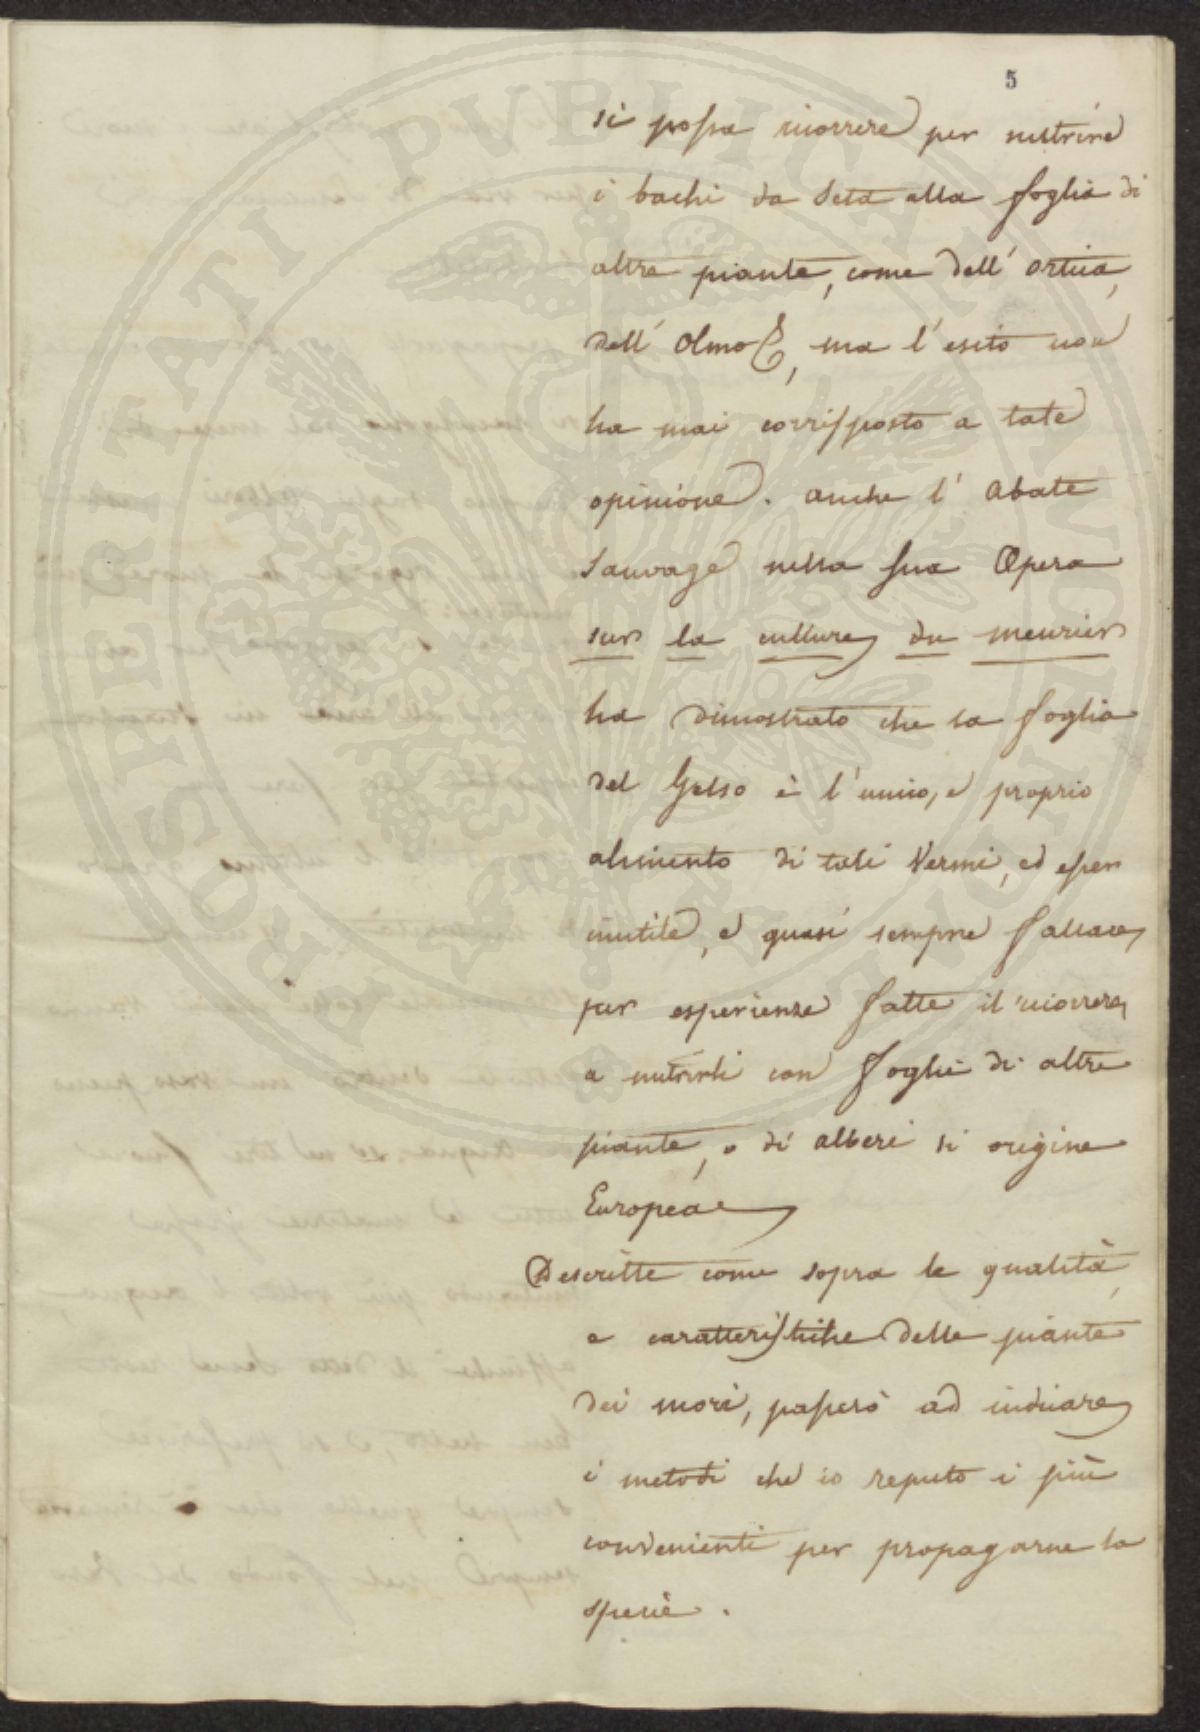 5
si possa ricorrere per nutrire
i bachi da Seta alla foglia di
altre piante, come dell' ortica,
dell' Olmo &, ma l'esito non
ha mai corrisposto a tale
opinione. anche l' Abate
Sauvage nella sua Opera
sur la culture du meurier
ha dimostrato che la foglia
del Gelso è l'unico, e proprio
alimento di tali Vermi, ed esser
inutile, e quasi sempre fallace
per esperienze fatte il ricorrere
a nutrirli con foglie di altre
piante, o di alberi di origine
Europea
Descritte come sopra le qualità,
e caratteristiche delle piante
dei mori, passerò ad indicare
i metodi che io reputo i più
convenienti per propagarne la
specie.
PROSPERITATI PVBLICAE AVGENDAE